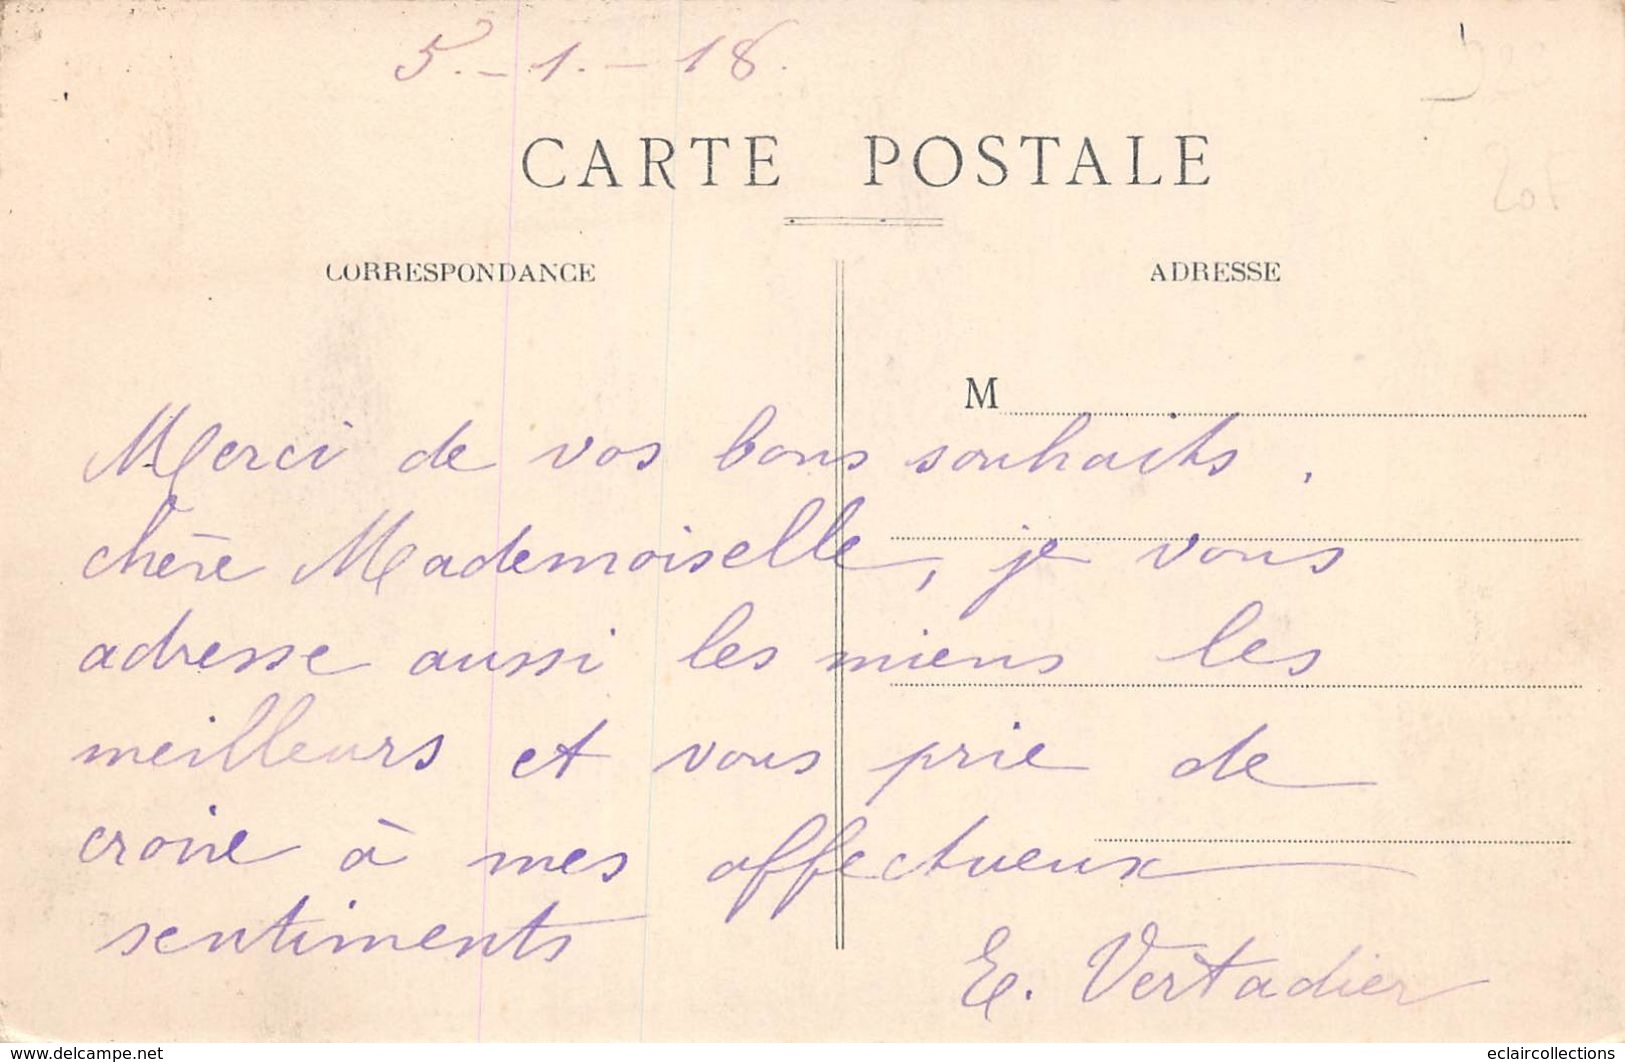 5.-1.-18.
CARTE POSTALE
CORRESPONDANCE
ADRESSE
M
Merci de vos bons souhaits,
chère Mademoiselle, je vous
adresse aussi les miens les
meilleurs et vous prie de
croire à mes affectueux
sentiments
E. Vertadier
www.delcampe.net
eclaircollections